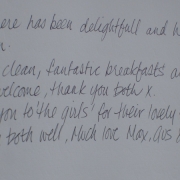 ere has been delightfull and h
n.
clean, fantastic breakfasts a
elcome, thank you both x.
you to 'the girls' for their lovely
both well, Much love Max, Gus &